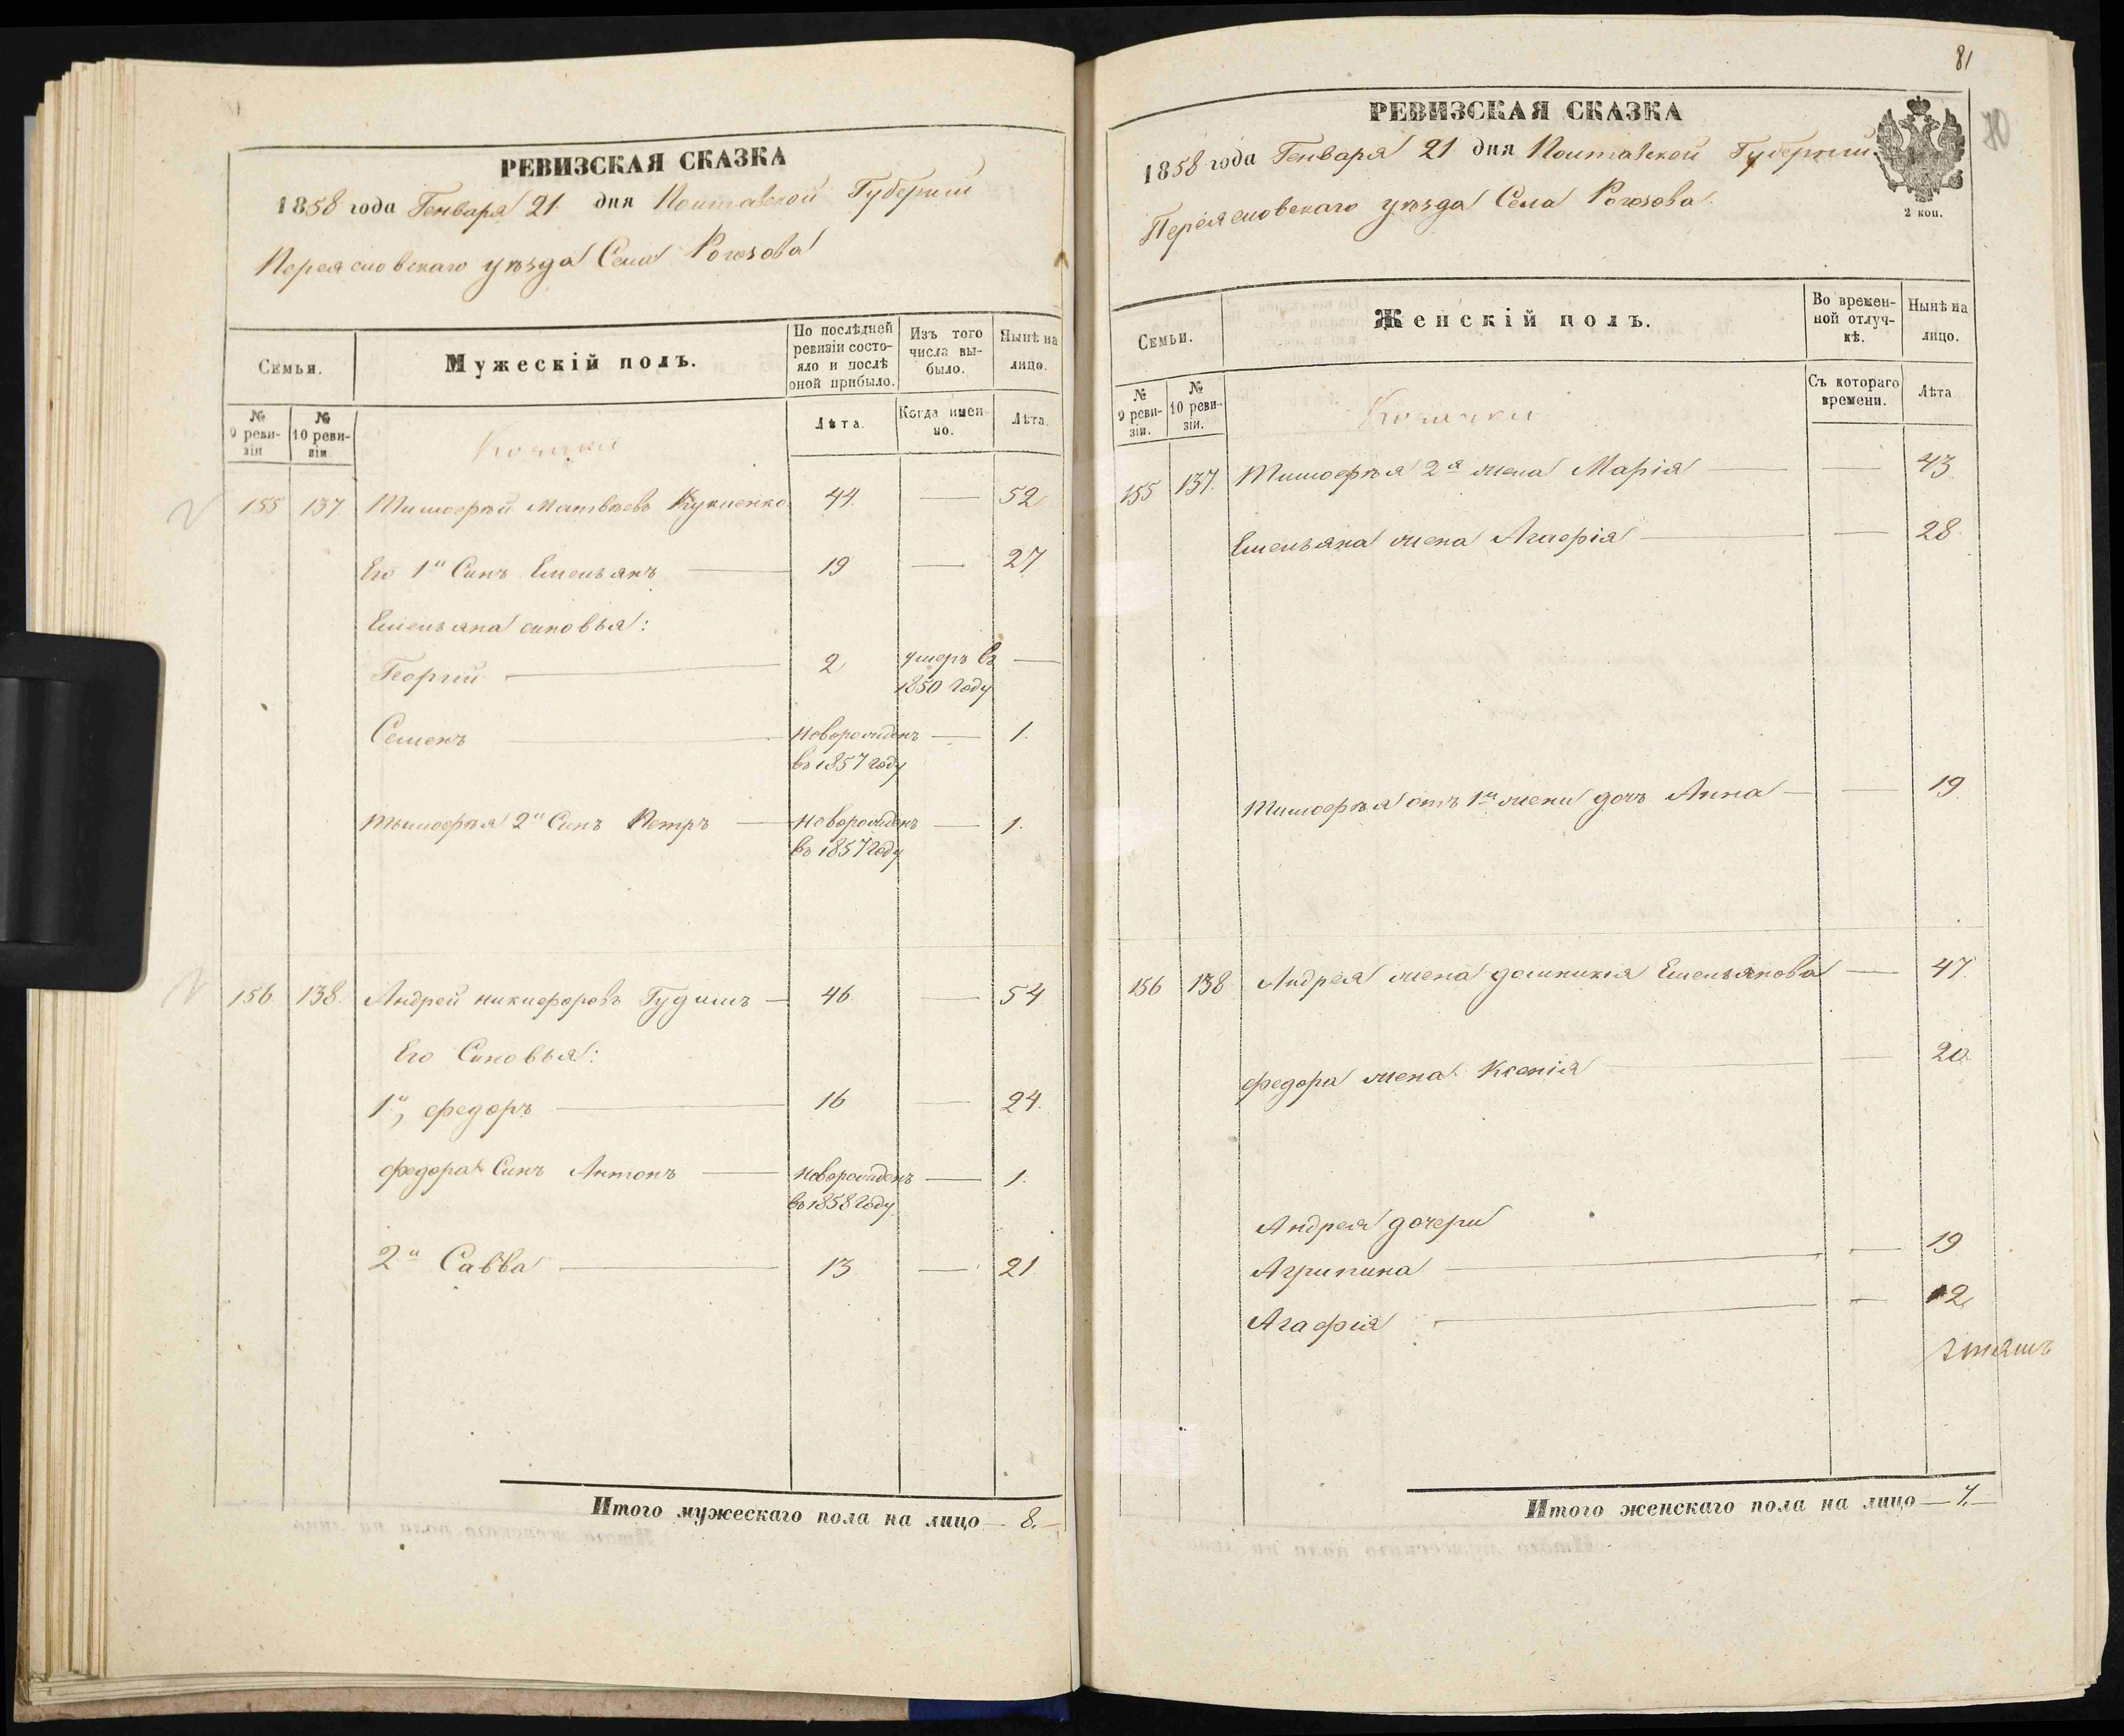 РЕВИЗСКАЯ СКАЗКА
1858 года Генваря 21 дня Полтавской Губернии
Переясловскаго уезда Села Рогозова
Семьи.
Мужескій полъ.
По послѣдней ревизіи состояло и послѣ оной прибыло.
Изъ того числа выбыло.
Нынѣ на лицо.
№ 9 ревизіи
№ 10 ревизіи
Козаки
Лѣта.
Когда именно.
Лѣта.
155 137 Тимофѣй Матвѣевъ 44. — 52
Его 1й Синъ Емельянъ — 19 — 27
Емельяна синовья:
Георгій — 2 умеръ въ —
1850 году
Семенъ — Новорожденъ — 1.
въ 1857 году
Тымофѣя 2й Синъ Петръ — Новорожденъ — 1.
въ 1857 году
156 138. Андрей никифоровъ Гудимъ — 46 — 54
Его Синовья:
1й, федоръ — 16 — 24.
федора Синъ Антонъ — Новорожденъ — 1.
въ 1858 году
2й Савва — 13 — 21.
Итого мужескаго пола на лицо — 8. —
81
РЕВИЗСКАЯ СКАЗКА
1858 года Генваря 21 дня Полтавской Губерніи
Переясловскаго уѣзда Села Рогозова.
2 коп.
Семьи.
Женскій полъ.
Во временной отлучкѣ.
Нынѣ на лицо.
№ 9 ревизіи.
№ 10 ревизіи.
Козачки
Съ котораго времени.
Лѣта
155 137. Тимофѣя 2я жена Марія — 43
Емельяна жена Агафія — 28.
Тимофѣя отъ 1й жени дочь Анна — 19
156 138 Андрея жена домникія Емельянова — 47.
федора жена Ксенія — 20.
Андрея дочери
Агрипина — 19
Агафія — 12
Итого женскаго пола на лицо — 7. —